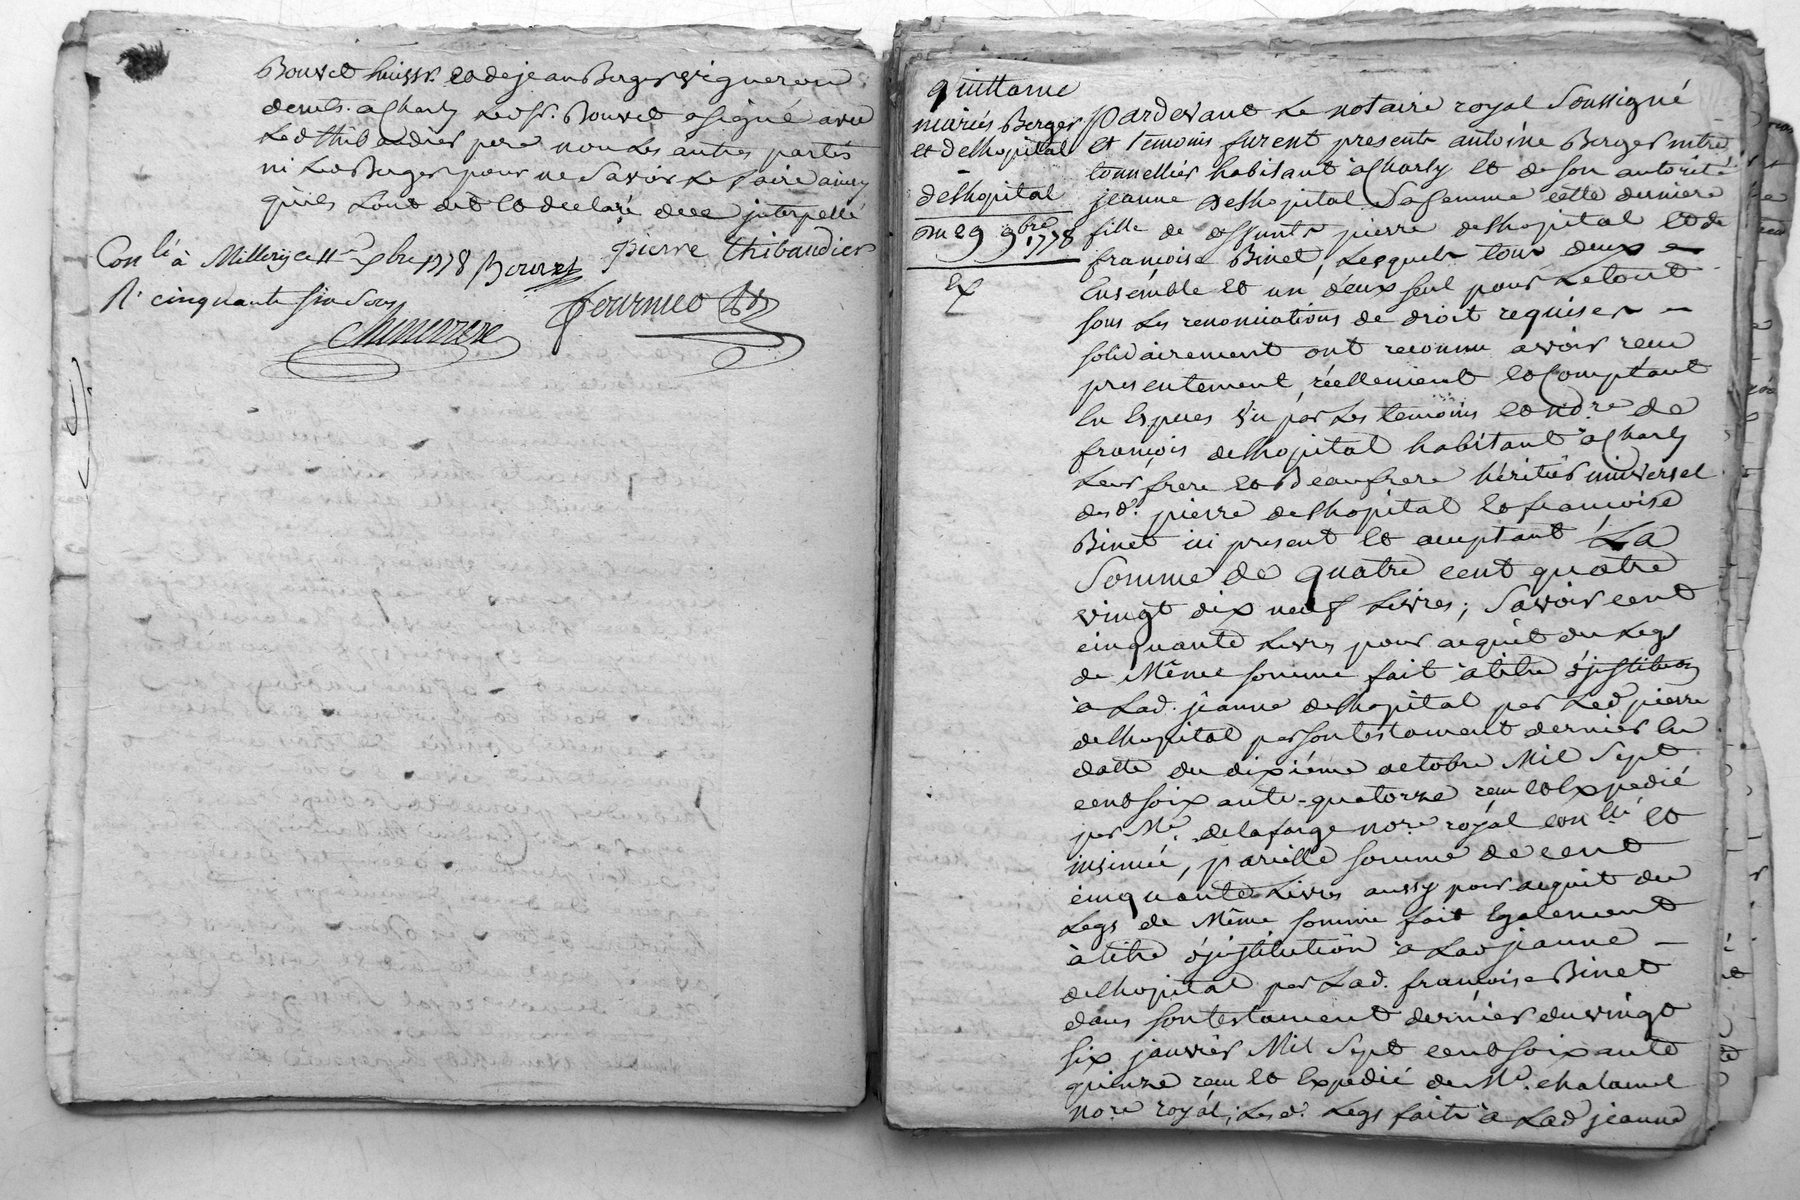 Bouvet huissr. et de jean Berger vigneron
demt. a Charly Led sr. Bouvet a signé avec
Led thibaudier pere non les autres partes
ni Led Berger pour ne Savoir Le faire ainsy
qu'ils L'ont dit et declaré deue jnterpellé
pierre thibaudier
Conlé à Millery ce 11e xbre 1778 Bouvet
R. cinquante six Sous
fournieo
quittance
mariés Berger
et delhopital
à
delhopital
du 29 9bre 1778
Ex
Pardevant Le notaire royal Soussigné
et temoins furent presents antoine Berger mtre
tonnellier habitant à Charly et de son autorité
jeanne delhopital Sa femme cette derniere
fille de deffunts pierre delhopital et de
francoise Binet, Lesquels tous deux
Ensemble et un d'eux seul pour Le tout
sous Les renonciations de droit requises
solidairement ont reconnu avoir recu
presentement réellement et Comptant
En Especes vu par Les temoins et no.re de
françois delhopital habitant à Charly
Leur frere et Beaufrere héritier universel
des d. pierre delhopital et francoise
Binet ici present et acceptant La
Somme de quatre cent quatre
vingt dix neuf Livres; Savoir cent
cinquante Livres pour acquit du Legs
de Même somme fait à titre d'jnstitution
à Lad. jeanne delhopital par Led pierre
delhopital par son testament dernier En
datte du dixiéme octobre Mil Sept
cent soixante-quatorze recu et Expedié
par Me. delafarge no.re royal conllé et
insinué, pareille somme de cent
cinquante Livres aussy pour acquit du
Legs de Même somme fait Egalement
à titre d'jnstitution à Lad jeanne
delhopital par Lad. francoise Binet
dans son testament dernier du vingt
six janvier Mil Sept cent soixante
quinze recu et Expedié de Me. chalamel
no.re royal; Les d. Legs faits à Lad jeanne